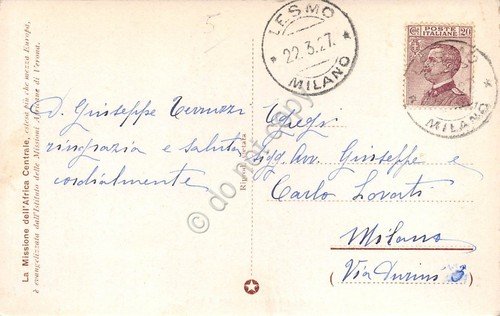 La Missione dell'Africa Centrale, estesa più che mezza Europa,
è evangelizzata dall'Istituto delle Missioni Africane di Verona.
5
D. Giuseppe Terruzzi
ringrazia e saluta
cordialmente
LESMO
22.3.27.
MILANO
Cent 20
POSTE ITALIANE
MILANO
Egregi
Sigg. Avv. Giuseppe e
Carlo
Milano
Via Durini 3